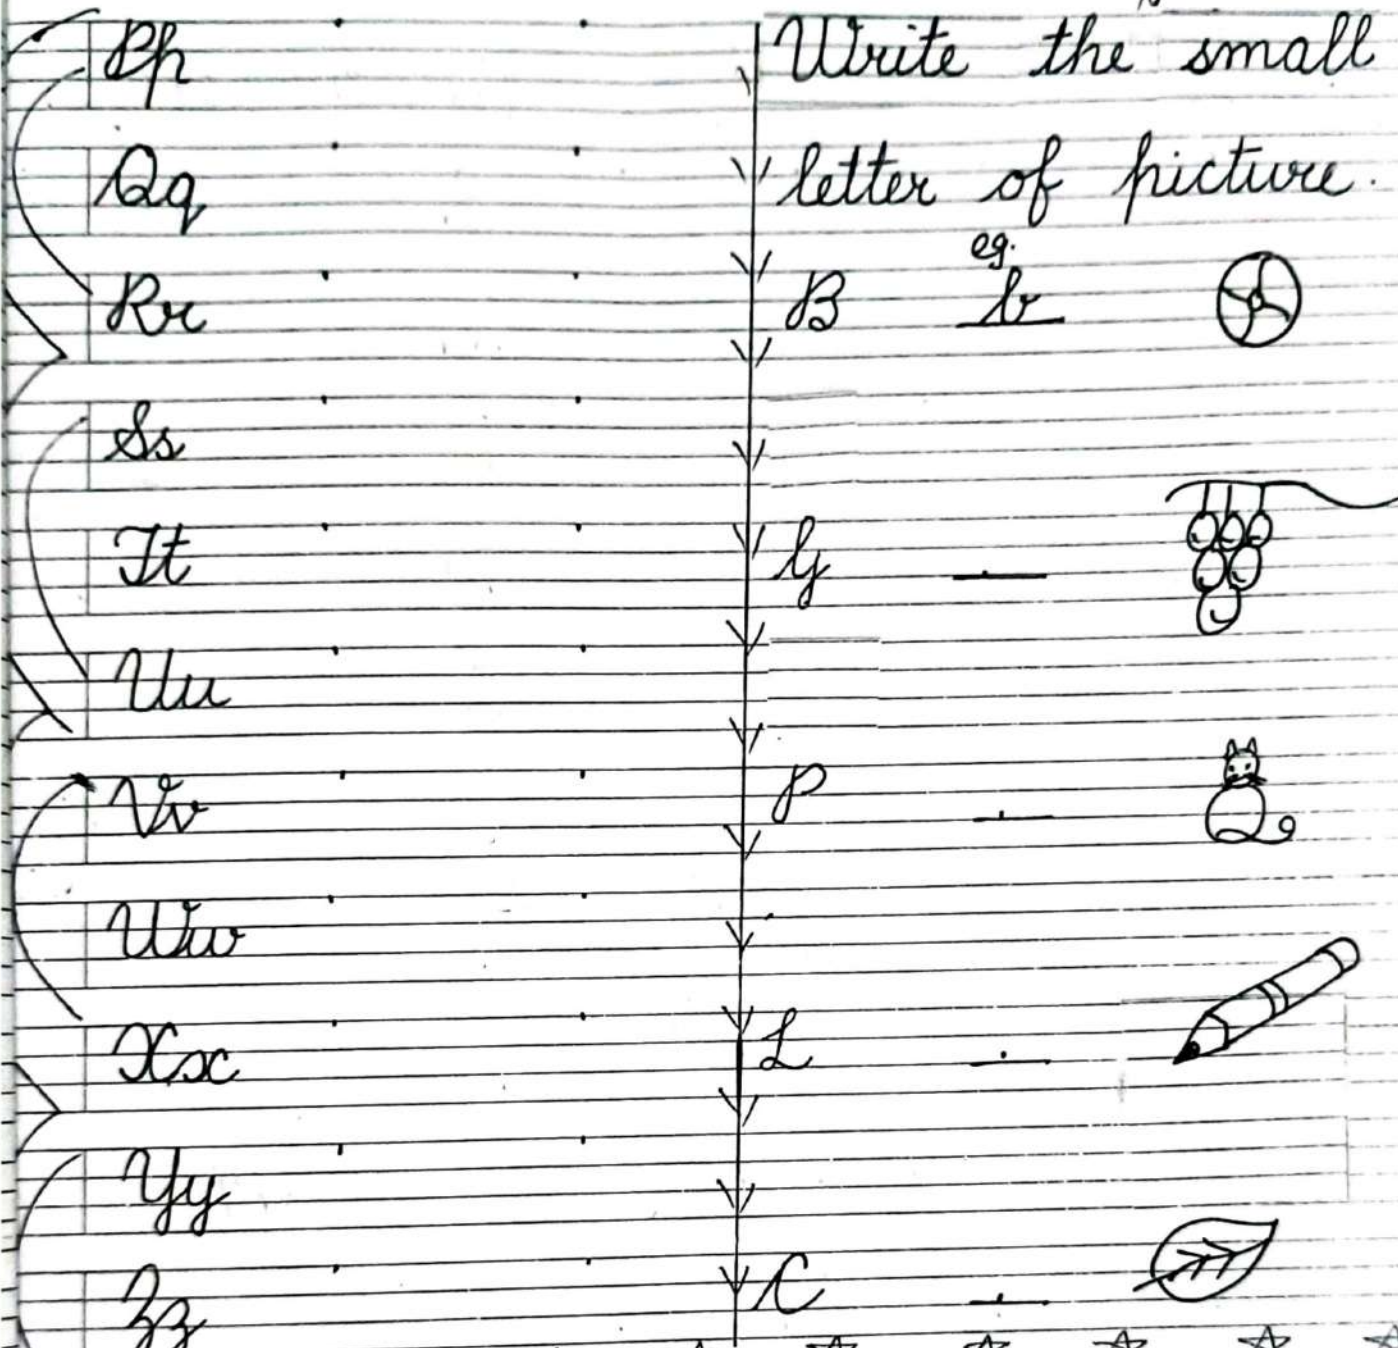 Pp
Qq
Rr
Ss
Tt
Uu
Vv
Ww
Xx
Yy
Zz
Write the small
letter of picture.
eg.
B b
G
P
L
C